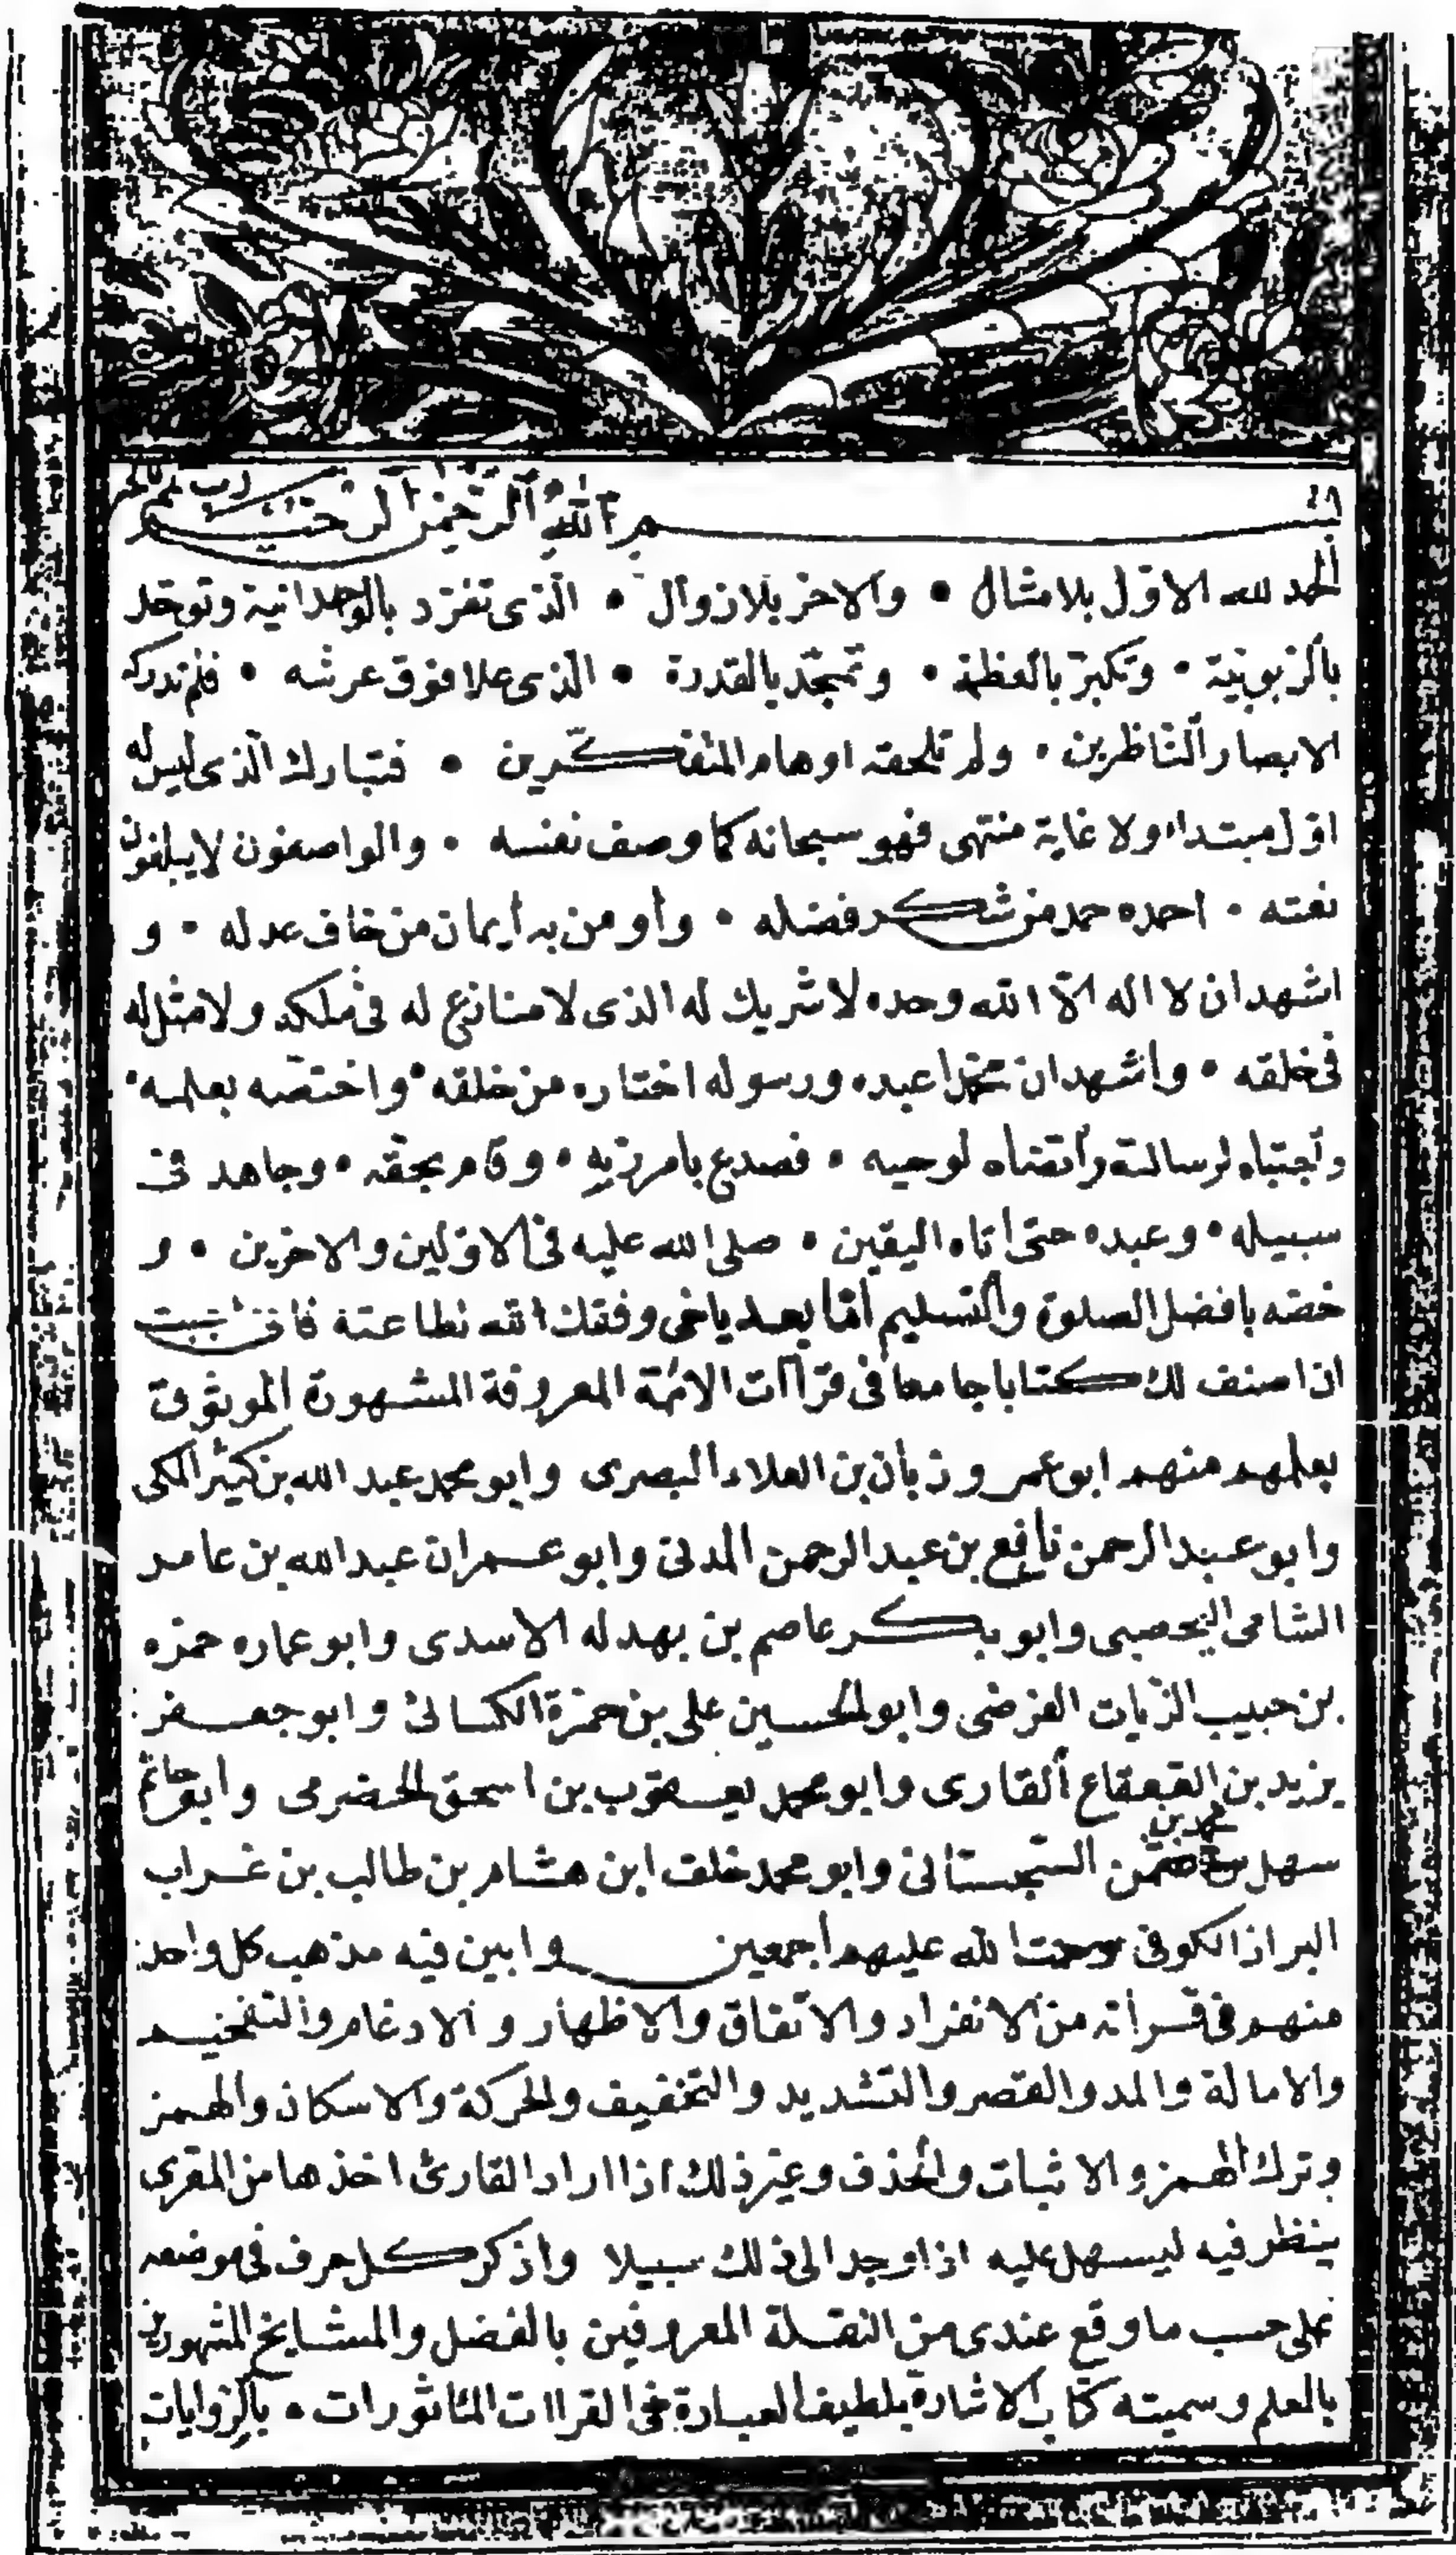 بسم الله الرحمن الرحيم رب تمم بالخير
الحمد لله الاوّل بلا مثال • والاخر بلا زوال • الّذى تفرّد بالوحدانية وتوحّد
بالرّبوبيّة • وتكبّر بالعظمة • وتمجّد بالقدرة • الّذى علا فوق عرشه • فلم تدركه
الابصار النّاظرين • ولم تلحقه اوهام المتفكّرين • فتبارك الّذى ليس له
اوّل مبتداء ولا غاية منتهى فهو سبحانه كما وصف نفسه • والواصفون لا يبلغون
نعته • احمده حمد من شكر فضله • وأومن به أيمان من خاف عدله • و
اشهد ان لا اله الّا الله وحده لا شريك له الذى لا منازع له فى ملكه ولا مثل له
فى خلقه • وأشهد ان محمّدا عبده ورسوله اختاره من خلقه • واختصّه بعلمه •
وأجتباه لرسالته وأتقناه لوحيه • فصدع بامر ربّه • وقام بحقّه • وجاهد فى
سبيله • وعبده حتى اتاه اليقين • صلى الله عليه فى الاوّلين والاخرين • و
خصّه بافضل الصلوة والتسليم امّا بعد ياخى وفقك الله لطاعته فانى احببت
ان اصنف لك كتابا جامعا فى قراات الائمّة المعروفة المشهورة الموثوق
بعلمهم منهم ابو عمرو زبان بن العلاء البصرى وابو محمد عبد الله بن كثير المكى
وابو عبد الرحمن نافع بن عبد الرحمن المدنى وابو عمران عبد الله بن عامر
الشامى اليحصبى وابو بكر عاصم بن بهدله الاسدى وابو عماره حمزه
بن حبيب الزيات الفرضى وابو الحسين على بن حمزة الكسائى وابو جعفر
يزيد بن القعقاع ألقارى وابو محمد يعقوب بن اسحق الحضرمى وابو حاتم
سهل بن محمد السّجستانى وابو محمد خلف ابن هشام بن طالب بن غراب
البزاز الكوفى رحمت الله عليهم أجمعين وابين فيه مذهب كل واحد
منهم فى قرأته من الانفراد والاتّفاق والاظهار والادغام والتفخيم
والامالة والمد والقصر والتشديد والتخفيف والحركة والاسكان والهمز
وترك الهمز والاثبات والحذف وغير ذلك اذا اراد القارئ اخذها من المقرى
ينظر فيه ليسهل عليه اذا وجد الى ذلك سبيلا واذكر كل حرف فى موضعه
على حسب ما وقع عندى من النقلة المعروفين بالفضل والمشايخ المشهورين
بالعلم وسميته كتاب الاشارة بلطيف العبارة فى القراات المأثورات • بالرّوايات